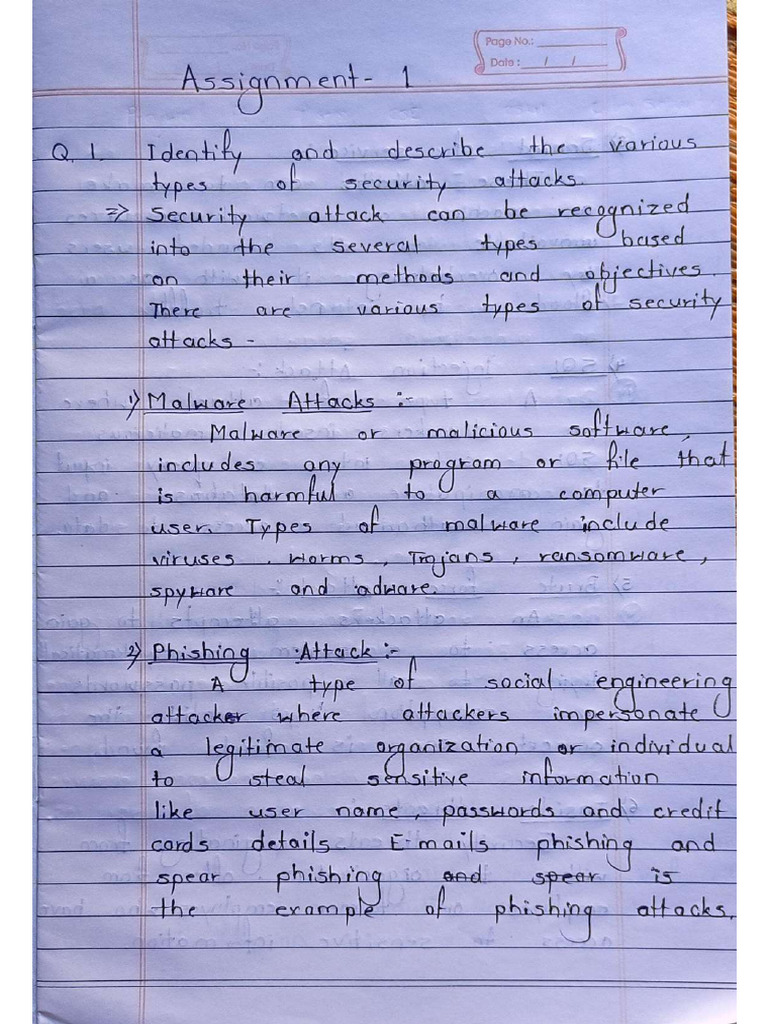 Page No.:
Date : / /
Assignment- 1
Q. 1. Identify and describe the various
types of security attacks.
=> Security attack can be recognized
into the several types based
on their methods and objectives.
There are various types of security
attacks -
1) Malware Attacks :-
Malware or malicious software,
includes any program or file that
is harmful to a computer
user. Types of malware include
viruses, worms, Trojans, ransomware,
spyware and adware.
2) Phishing Attack :-
A type of social engineering
attacker where attackers impersonate
a legitimate organization or individual
to steal sensitive information
like user name, passwords and credit
cards details. E-mails phishing and
spear phishing and spear is
the example of phishing attacks.